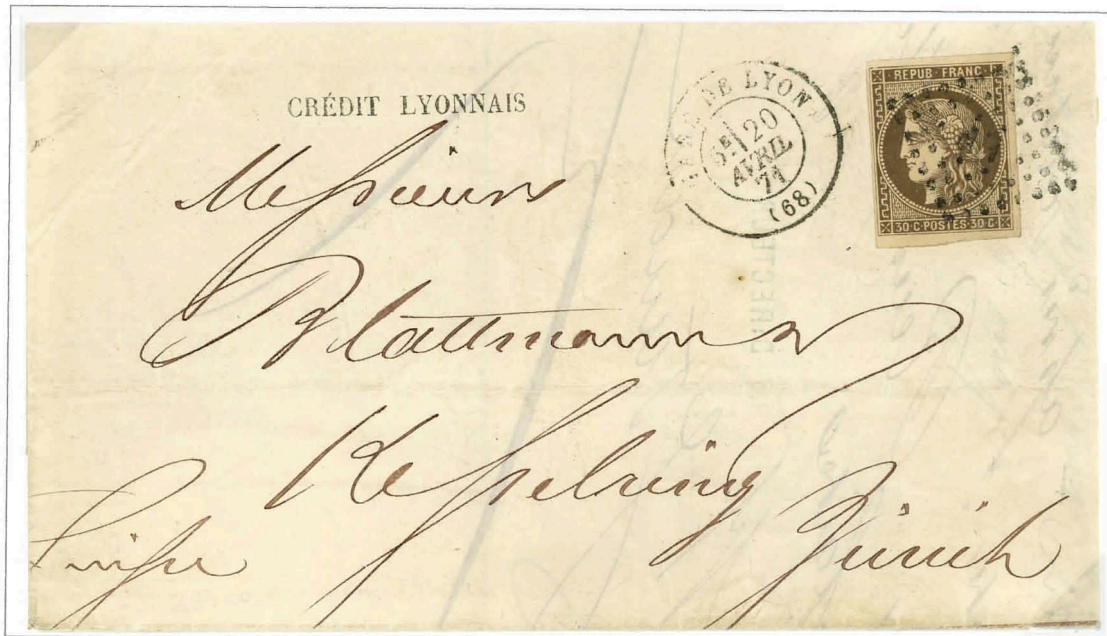 CRÉDIT LYONNAIS
DE LYON
6E 20
AVRIL
71
(68)
REPUB FRANC
30·C·POSTES·30·C
Messieurs
Blattmann &
Kesselring
Zürich
Suisse